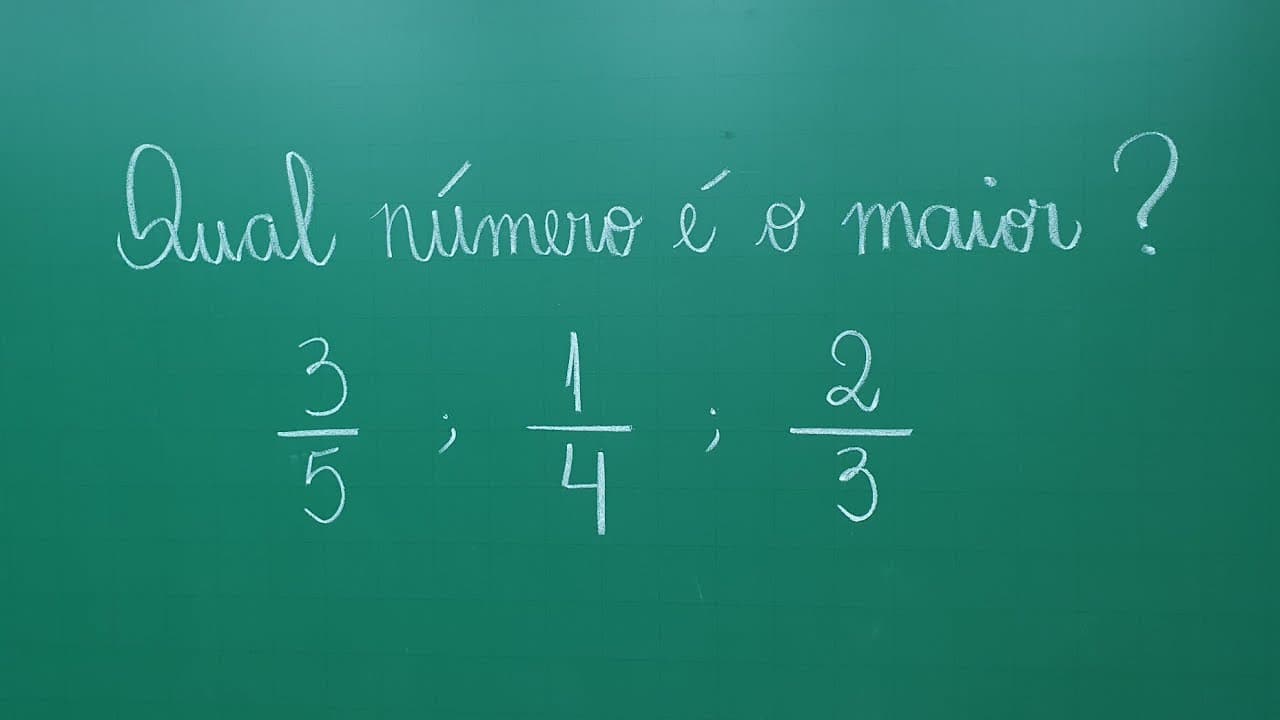 Qual número é o maior?
3/5 ; 1/4 ; 2/3